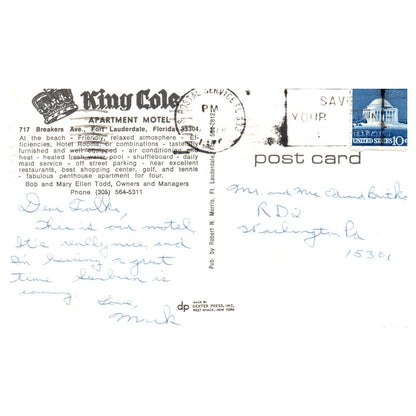 King Cole
APARTMENT MOTEL
717 Breakers Ave., Fort Lauderdale, Florida 33304
At the beach - Friendly, relaxed atmosphere - Ef-
ficiencies, Hotel Rooms, or combinations - tastefully
furnished and well equipped - air conditioning and
heat - heated fresh water pool - shuffleboard - daily
maid service - off street parking - near excellent
restaurants, best shopping center, golf, and tennis
- fabulous penthouse apartment for four.
Bob and Mary Ellen Todd, Owners and Managers
Phone (305) 564-5311
Dear Folks,
This is our motel
It's really nice and
I'm having a great
time Sunburn is
coming
Love,
Mark
Pub. by Robert N. Morris, Ft. Lauderdale
dp MADE BY
DEXTER PRESS, INC.
WEST NYACK, NEW YORK
U.S. POSTAL SERVICE FL
PM
SAVE
YOUR
UNITED STATES 10c
post card
Mr. and Mrs Edward
RD2
Washington Pa.
15301